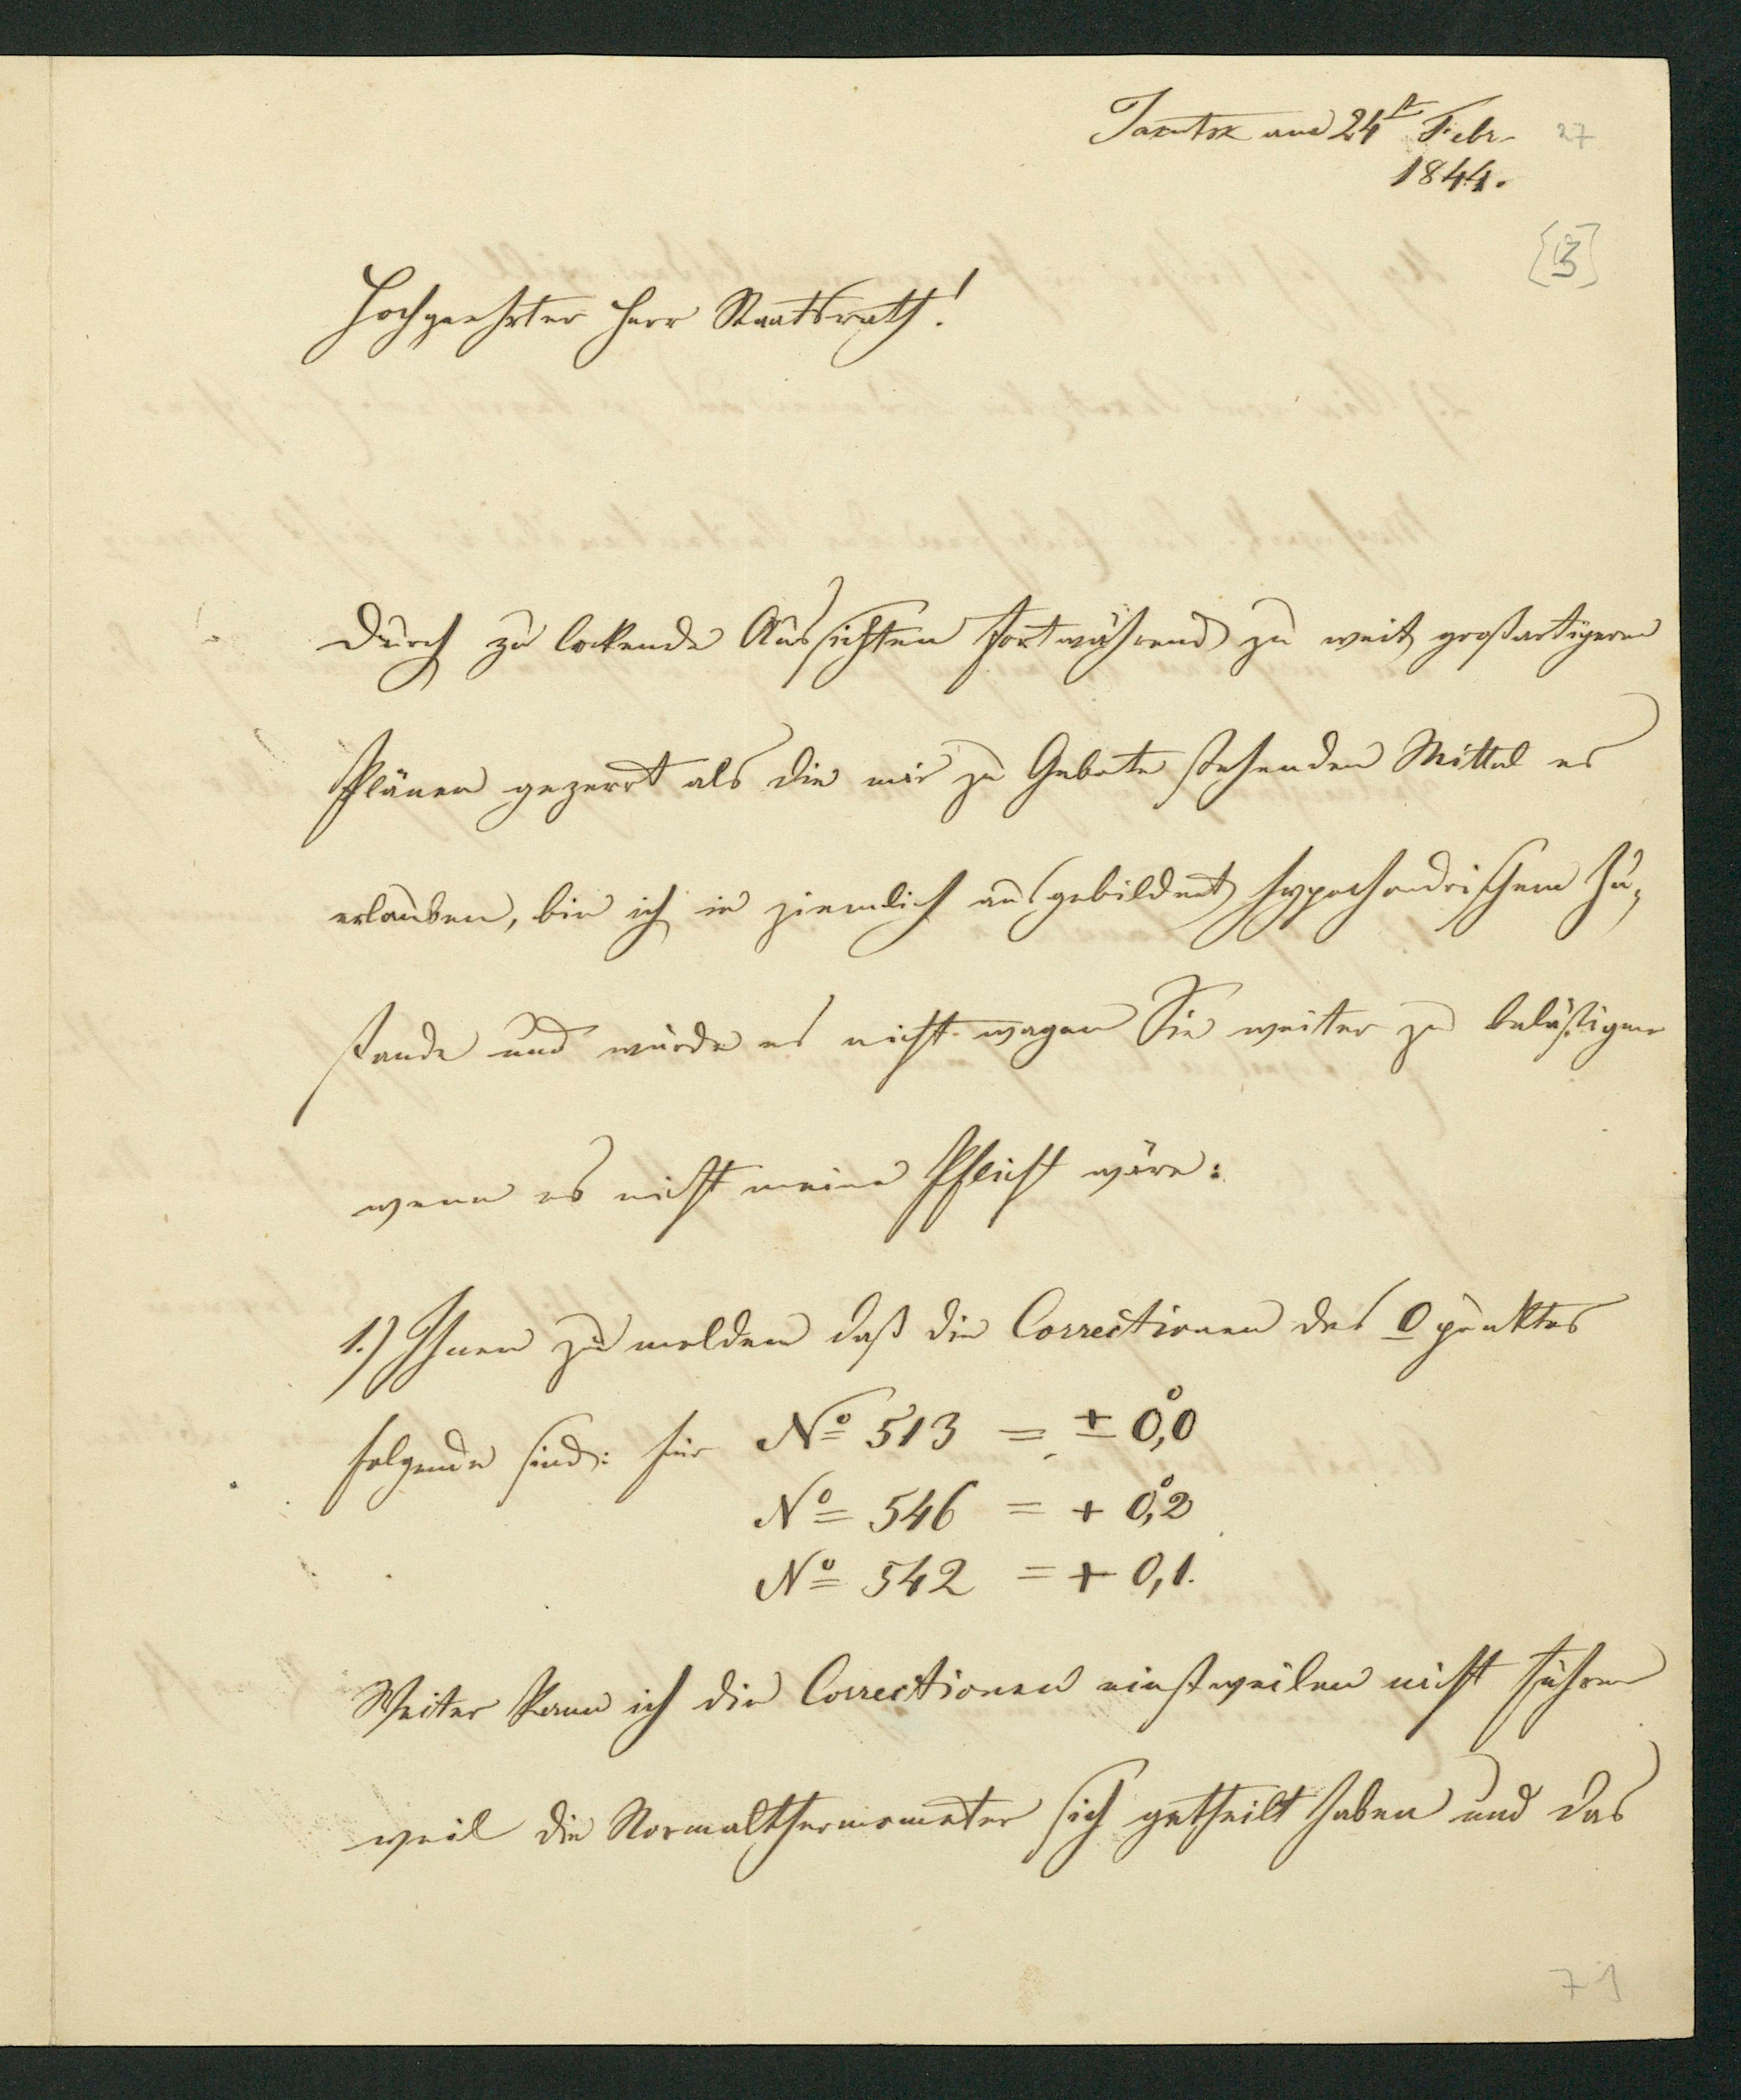 Jakutsk am 24st Febr. 27
1844.
[3]
Hochgeehrter Herr Staatsrath!
Durch zu lockende Aussichten fortwährend zu weit großartigeren
Plänen gezerrt als die mir zu Gebote stehenden Mittel es
erlauben, bin ich in ziemlich ausgebildet hypochondrischem Zu-
stande und würde es nicht wagen Sie weiter zu belästigen
wenn es nicht meine Pflicht wäre:
1.) Ihnen zu melden daß die Correctionen des 0punktes
folgende sind: für No 513 = ± 0,°0
No 546 = + 0,°2
No 542 = + 0,1.
Weiter kann ich die Correctionen einstweilen nicht führen
weil die Normalthermometer sich getheilt haben und das